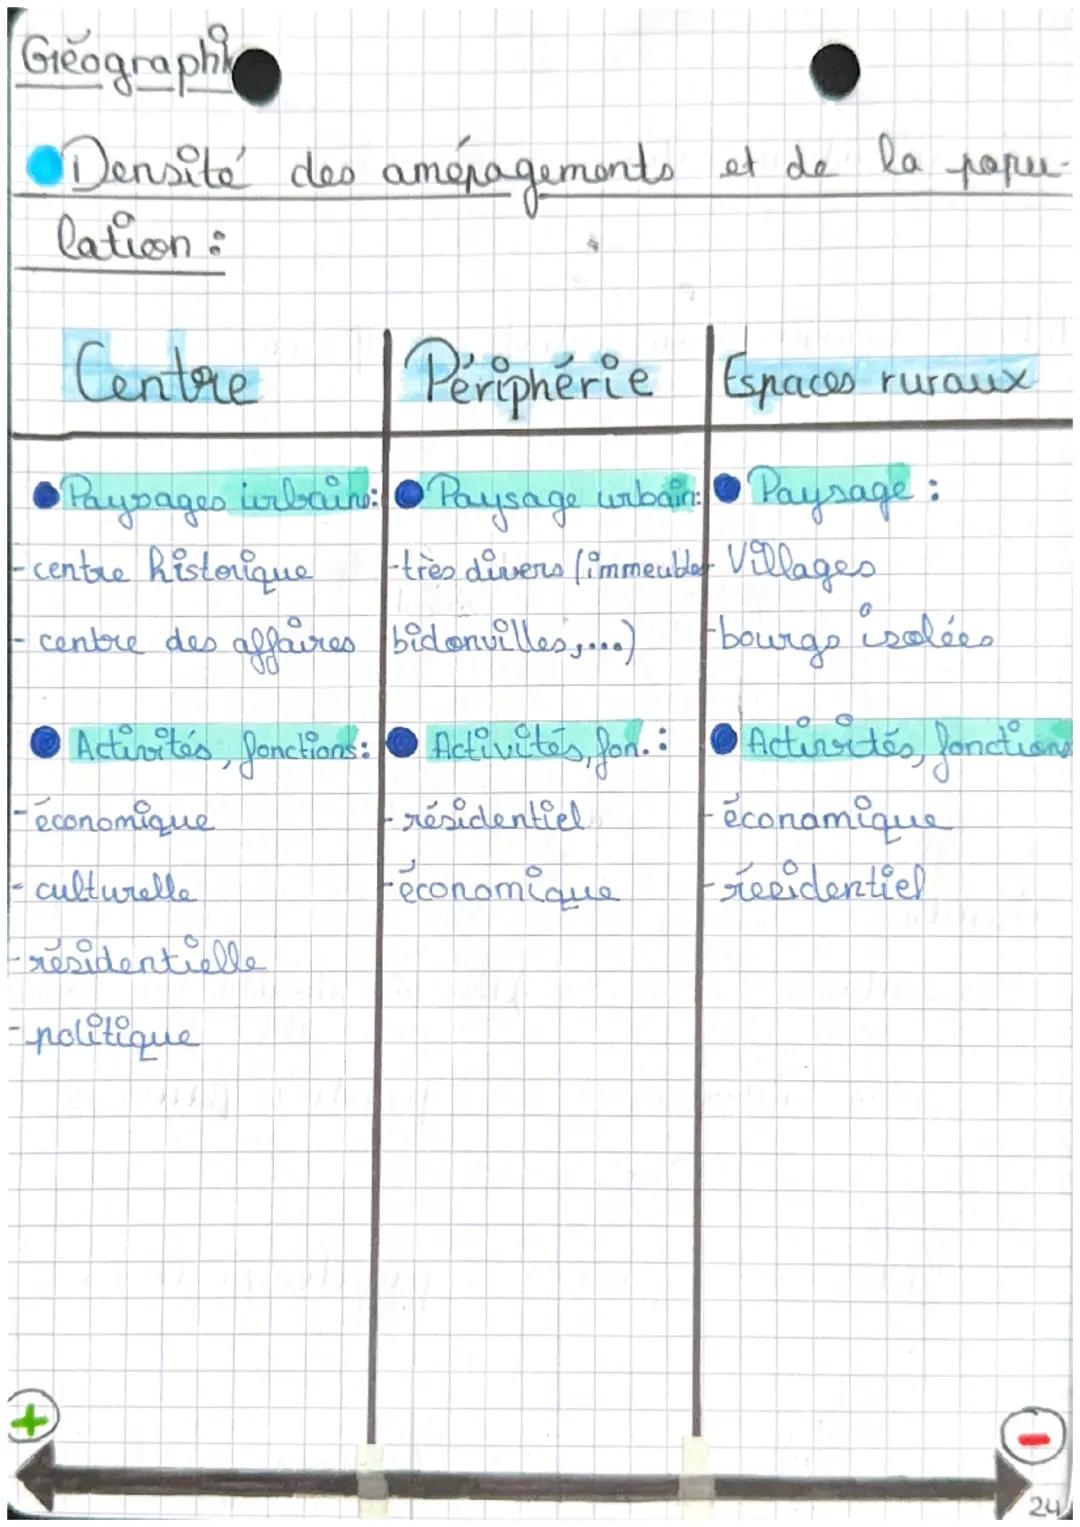 Géographie
Densité des aménagements et de la popu-
lation :
Centre
Périphérie
Espaces ruraux
Paysages urbains:
- centre historique
- centre des affaires
Activités, fonctions:
- économique
- culturelle
- résidentielle
- politique
Paysage urbain:
- très divers (immeubles
bidonvilles,....)
Activités, fon. :
- résidentiel
- économique
Paysage :
- Villages
- bourgs isolées
Activités, fonctions
- économique
- résidentiel
+
-
24